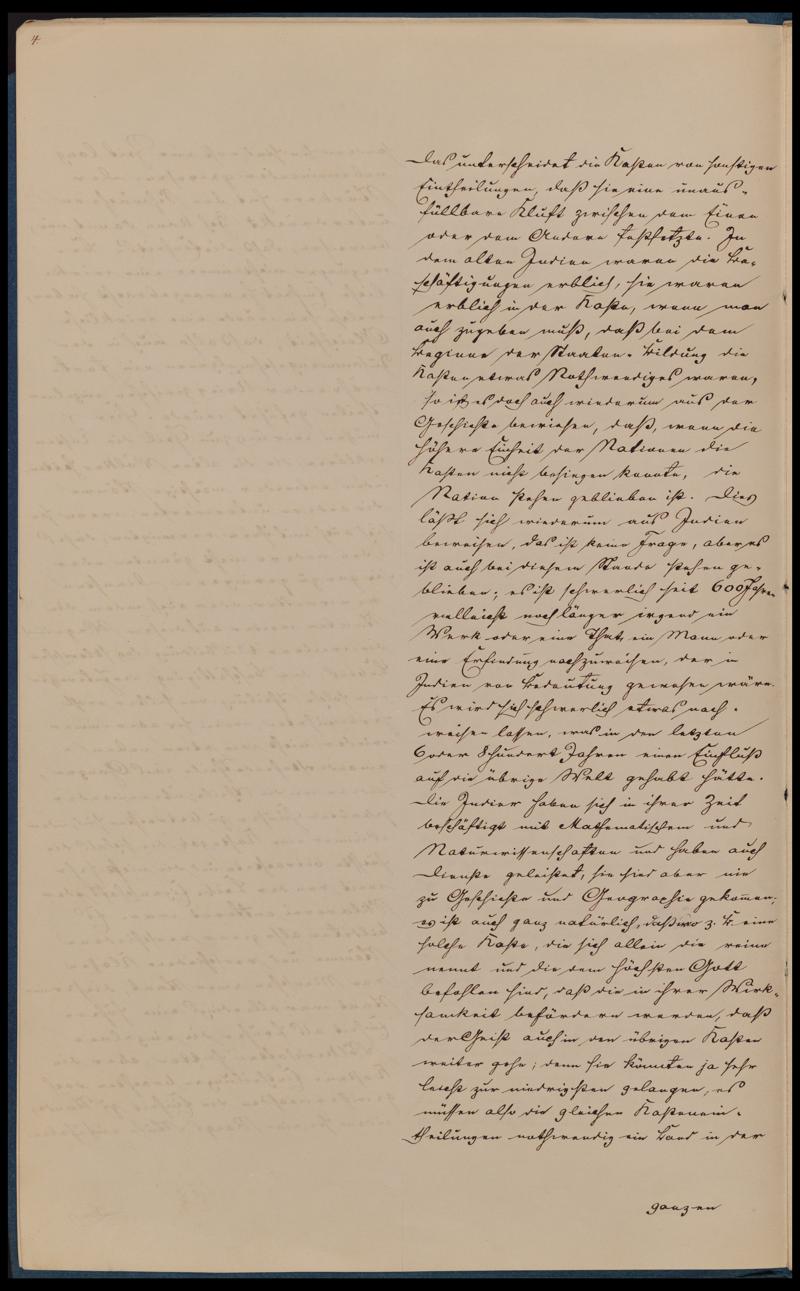 4.
Das unterscheidet die Kasten von sonstigen
Eintheilungen, daß sie eine unaus-
füllbare Kluft zwischen dem Einen
oder dem Andern festsetzte. In
dem alten Indien waren die Be-
schäftigungen erblich, sie waren
erblich in der Kaste, wenn man
auch zugeben muß, daß bei dem
Beginne der Staaten-Bildung die
Kasten etwas Nothwendiges waren,
so ist es doch auch wiederum aus der
Geschichte bewiesen, daß, wenn die
höhere Einheit der Nationen die
Kasten nicht besiegen konnte, die
Nation stehen geblieben ist. Dies
läßt sich wiederum aus Indien
beweisen, das ist keine Frage, aber es
ist auch bei diesem Stande stehen ge-
blieben; es ist schwerlich seit 600 Jahren
vielleicht noch länger irgend ein
Werk oder eine That, ein Mann oder
eine Erfindung nachzuweisen, der in
Indien von Bedeutung gewesen wäre.
Es wird sich schwerlich etwas nach-
weisen lassen, was in den letzten
6 oder 8hundert Jahren einen Einfluß
auf die übrige Welt gehabt hätte.
Die Indier haben sich in ihrer Zeit
beschäftigt mit Mathematischem und
Naturwissenschaften und haben auch
Dienste geleistet, sie sind aber nie
zu Geschichte und Geographie gekommen;
es ist auch ganz natürlich, daß wo z. B. eine
solche Kaste, die sich allein die reine
nennt und die dem höchsten Gott
befohlen sind, daß die in ihrer Wirk-
samkeit befördern werden, daß
der Geist auch in den übrigen Kasten
weiter gehe; denn sie könnten ja sehr
leicht zur niedrigsten gelangen, es
müssen also die gleichen Kastenein-
theilungen nothwendig ein Band in der
ganzen